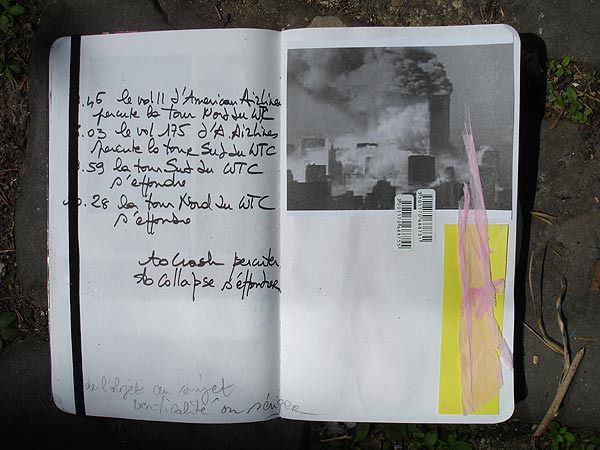 .46 le vol 11 d'American Airlines
percute la Tour Nord du WTC
.03 le vol 175 d'A Airlines
percute la tour Sud du WTC
.59 la tour Sud du WTC
s'effondre
.28 la tour Nord du WTC
s'effondre
to Crash percuter
to collapse s'effondrer
de l'objet au sujet
verticalité ou